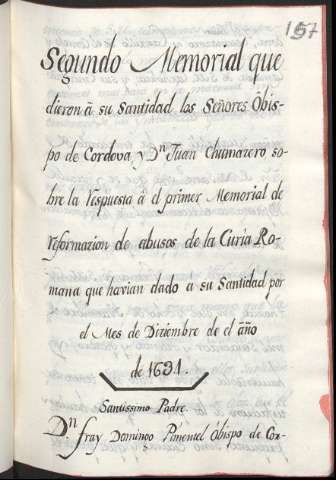 157
Segundo Memorial que
dieron â su Santidad los Señores Ôbis-
po de Cordova, y Dn Juan Chumazero so-
bre la Respuesta â el primer Memorial de
reformazion de abusos de la Curia Ro-
mana que havian dado a su Santidad por
el Mes de Diziembre de el âño
de 1631.
Santissimo Padre.
Dn fray Domingo Pimentel Ôbispo de Cor-